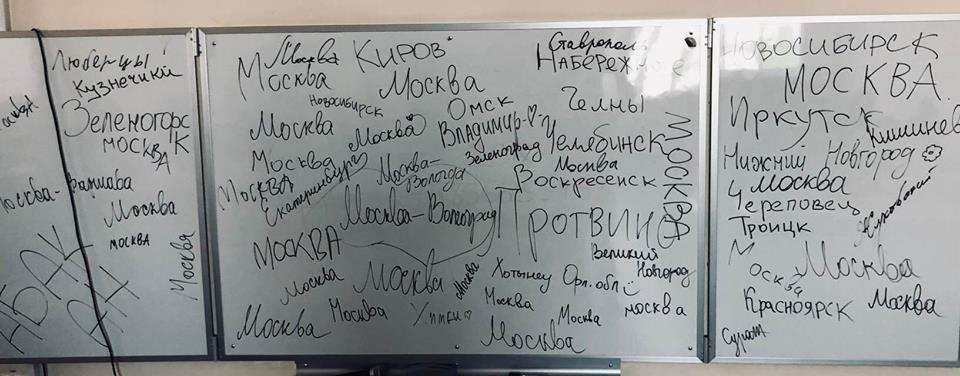 Люберцы
Кузнечики
Зеленогорск
Москва
Москва-
Москва
москва
Москва
НБАК
Москва
Киров
Москва
Москва
Новосибирск
Москва
Москва
Омск
Владимир-
Москва
Зеленоград
Москва
Екатеринбург
Москва-
Вологда
Москва-Волгоград
Москва
Москва
Москва
Москва
Москва
Химки
Москва
Ставрополь
Набережные
Челны
Челябинск
Москва
Воскресенск
Москва
Протвино
Великий
Новгород
Хотынец Орл. обл
Москва
Москва
Москва
Москва
Новосибирск
Москва
Иркутск
Кишинев
Нижний Новгород
Москва
Череповец
Жуковский
Троицк
Москва
Москва
Красноярск
Москва
Сураж